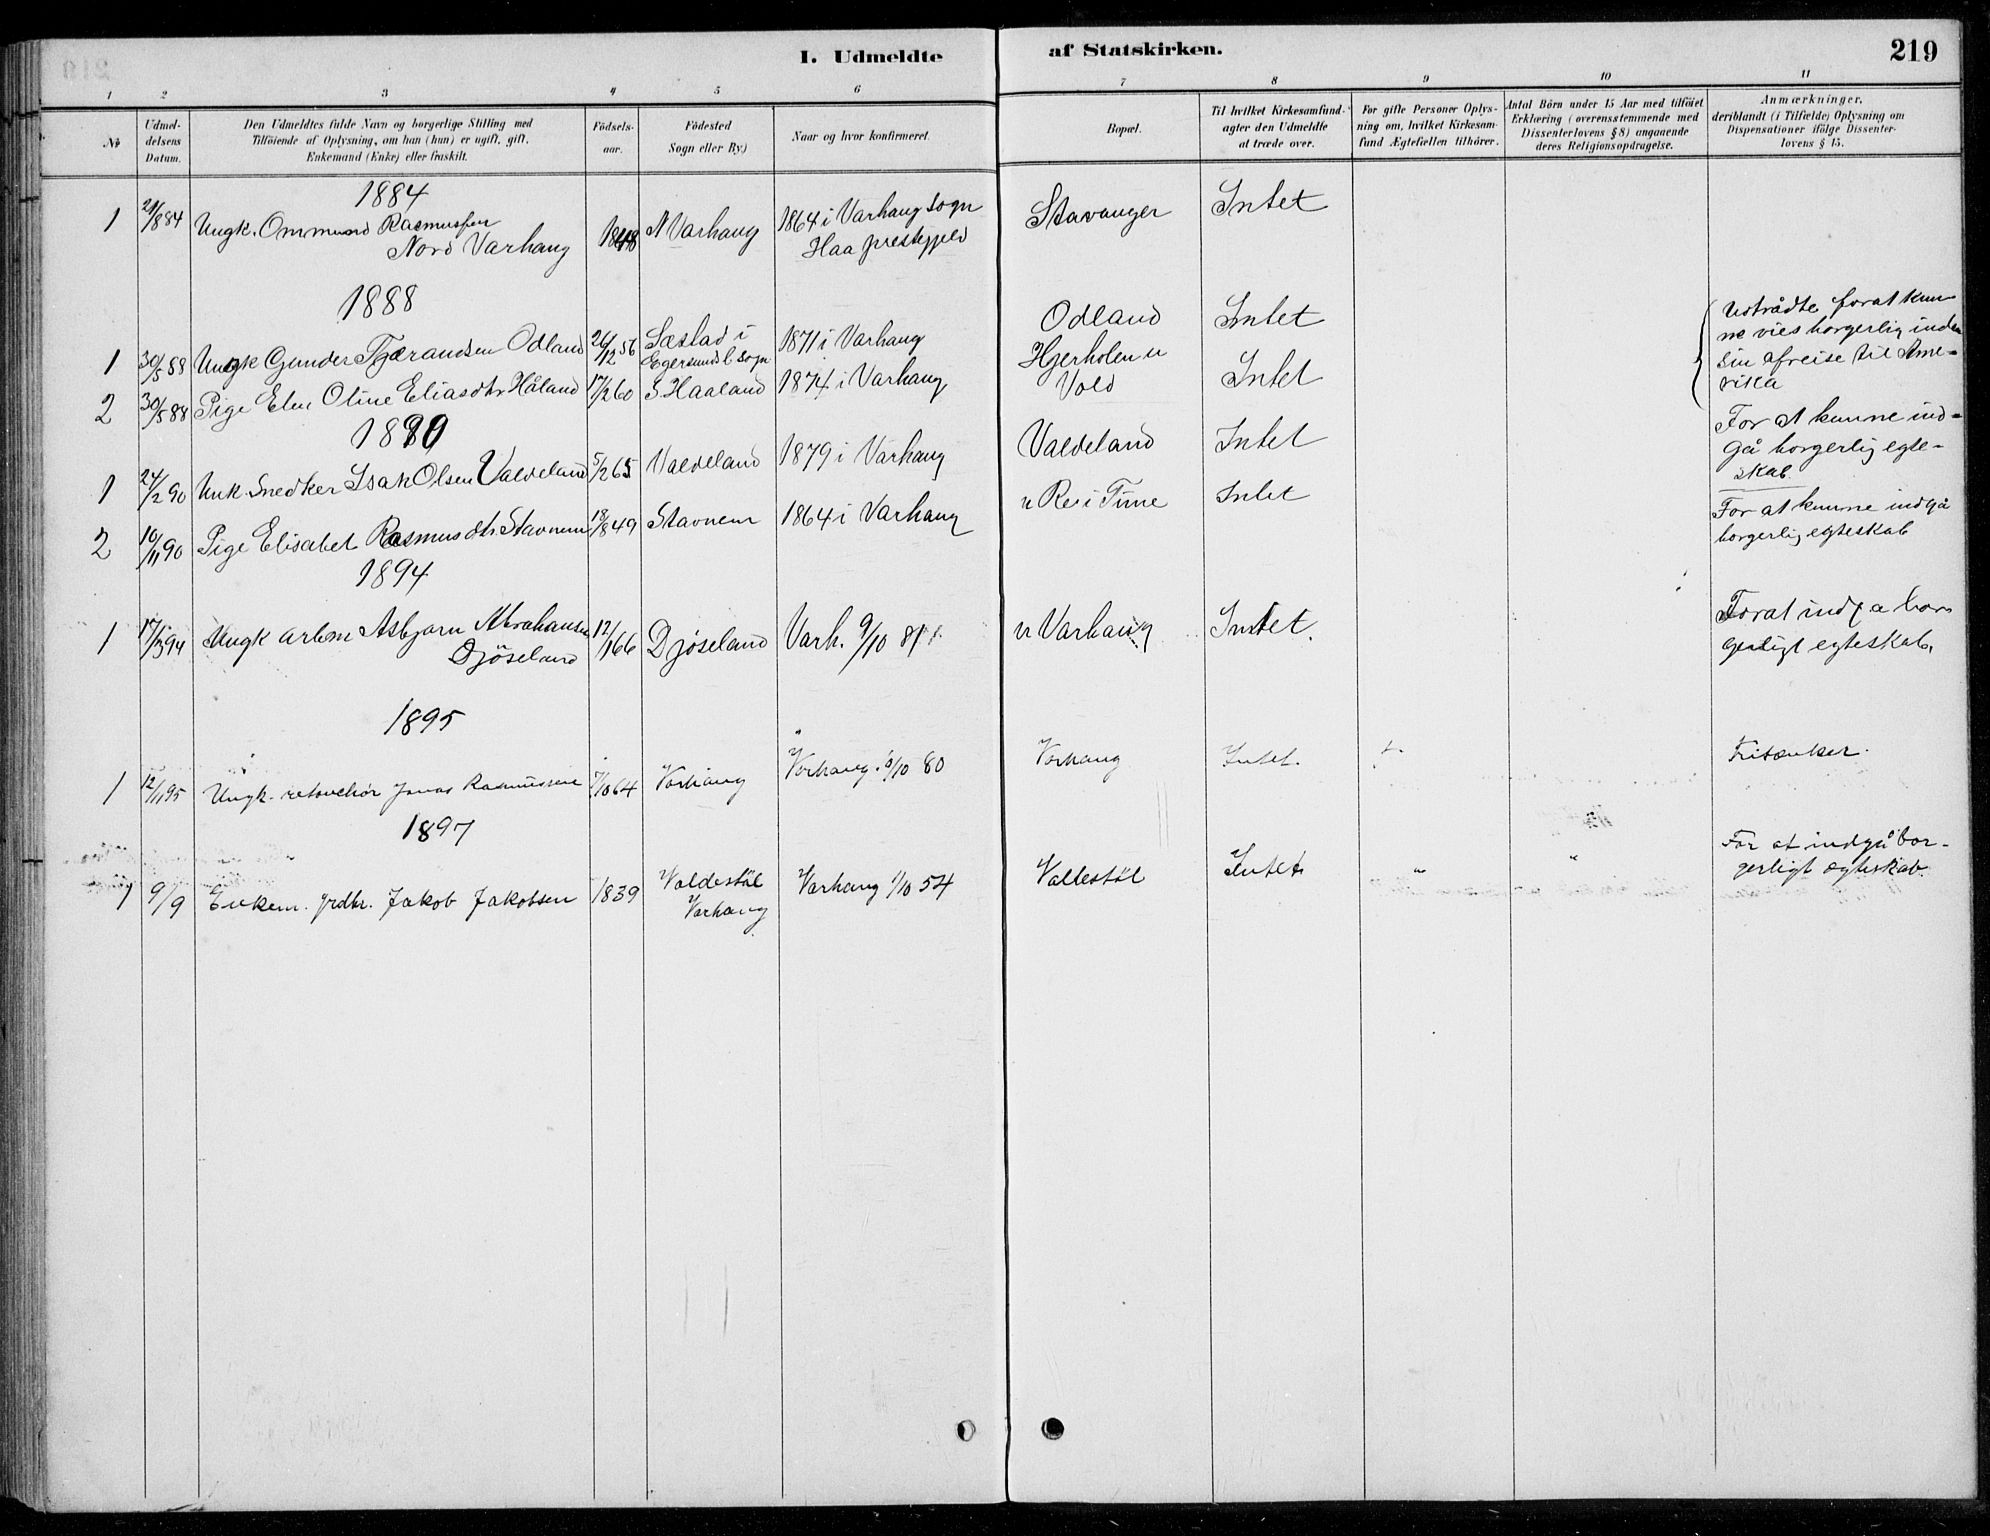 I. Udmeldte af Statskirken. 219
1 2 3 4 5 6 7 8 9 10 11
No
Udmel-
delsens
Datum.
Den Udmeldtes fulde Navn og borgerlige Stilling med
Tilføiende af Oplysning, om han (hun) er ugift, gift,
Enkemand (Enke) eller fraskilt.
Födsels-
aar.
Födested
Sogn eller By.)
Naar og hvor konfirmeret.
Bopæl.
Til hvilket Kirkesamfund
agter den Udmeldte
at træde over.
For gifte Personer Oplys-
ning om, hvilket Kirkesam-
fund Ægtefællen tilhörer.
Antal Börn under 15 Aar med tilföiet
Erklæring (overensstemmende med
Dissenterlovens § 8) angaaende
deres Religionsopdragelse.
Anmærkninger,
deriblandt (i Tilfælde) Oplysning om
Dispensationer ifölge Dissenter-
lovens § 15.
1884
1 21/8 84 Ungk. Ommund Rasmussen
Nord Varhaug 1848 N Varhaug 1864 i Varhaug sogn
Haa prestegjeld Stavanger Intet
1888
1 30/5 88 Ungk Gunder Tgærandsen Odland 26/12 56 Sæstad i
Egersunds l. sogn 1871 i Varhaug Odland Intet
2 30/5 88 Pige Elen Oline Eliasdtr Håland 17/2 60 S. Haaland 1874 i Varhaug Hjerholen
Vold Intet
Udtrådte forat kun-
ne vies borgerlig inden
sin afreise til Ame-
rika
1890
1 24/2 90 Unk Snedker Isak Olsen Valdeland 5/2 65 Valdeland 1879 i Varhaug Valdeland Intet
For at kunne ind-
gå borgerlig egte-
skab
2 10/11 90 Pige Elisabet Rasmusdtr Stavnem 18/8 49 Stavnem 1864 i Varhaug Re i Time Intet
For at kunne indgå
borgerlig egteskab
1894
1 17/3 94 Ungk arbm Asbjørn Abrahamsen
Djöseland 12/1 66 Djöseland Varh. 9/10 81 Varhaug Intet.
Forat indga bor
gerligt egteskab.
1895
1 12/11 95 Ungk. Jonas Rasmussen 7/10 64 Varhaug Varhaug 80 Varhaug Intet.
Fritænker.
1897
1 9/9 Enkem. Jakob Jakobsen 1839 Valdestöl
Varhaug Varhaug 1/10 54 Vallestöl Intet " "
For at indgå bor-
gerligt ægteskab